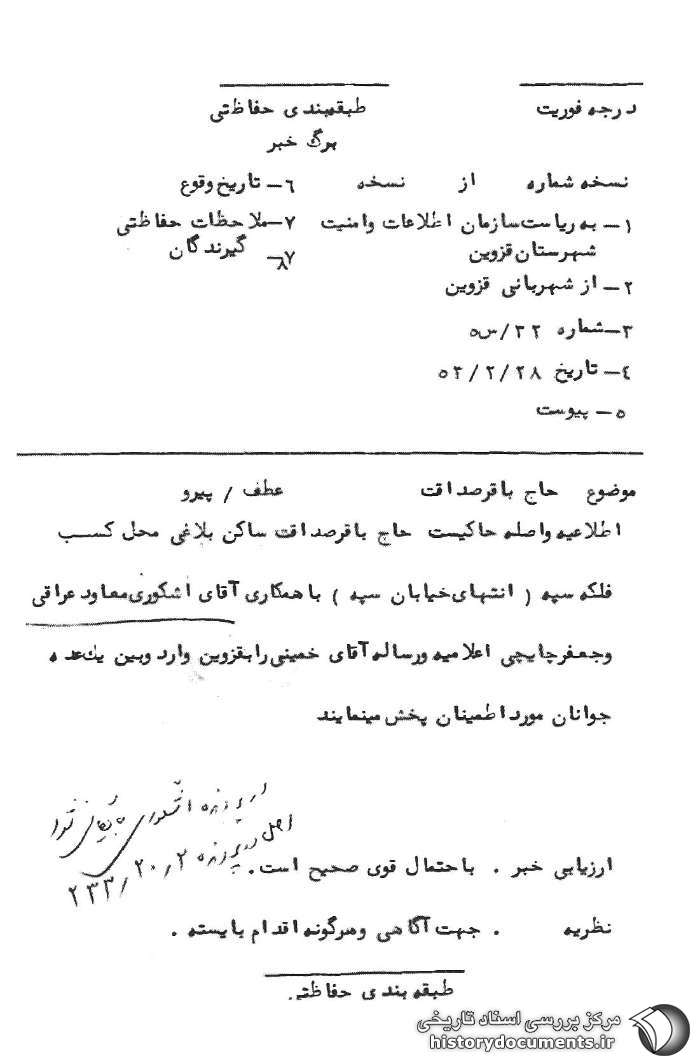 درجه فوریت طبقه‌بندی حفاظتی
برگ خبر
نسخه شماره از نسخه ٦ــ تاریخ وقوع
۱ــ به ریاست سازمان اطلاعات وامنیت ۷ــ ملاحظات حفاظتی
شهرستان قزوین ۸ــ گیرندگان
۲ــ از شهربانی قزوین
۳ــ شماره ۲۲/س۵
٤ــ تاریخ ۵۲/۲/۲۸
۵ــ پیوست
موضوع حاج باقرصداقت عطف / پیرو
اطلاعیه واصله حاکیست حاج باقرصداقت ساکن بلاغی محل کسب
فلکه سپه ( انتهای خیابان سپه ) با همکاری آقای اشکوری معاود عراقی
وجعفرچایچی اعلامیه ورساله آقای خمینی را بقزوین وارد وبین یک عده
جوانان مورد اطمینان پخش مینمایند
در پرونده اشکوری بایگانی شود
اصل در پرونده ۲۳۳/۲۰/۲
ارزیابی خبر . با احتمال قوی صحیح است .
نظریه . جهت آگاهی وهرگونه اقدام بایسته .
طبقه بندی حفاظتی
مرکز بررسی اسناد تاریخی
historydocuments.ir